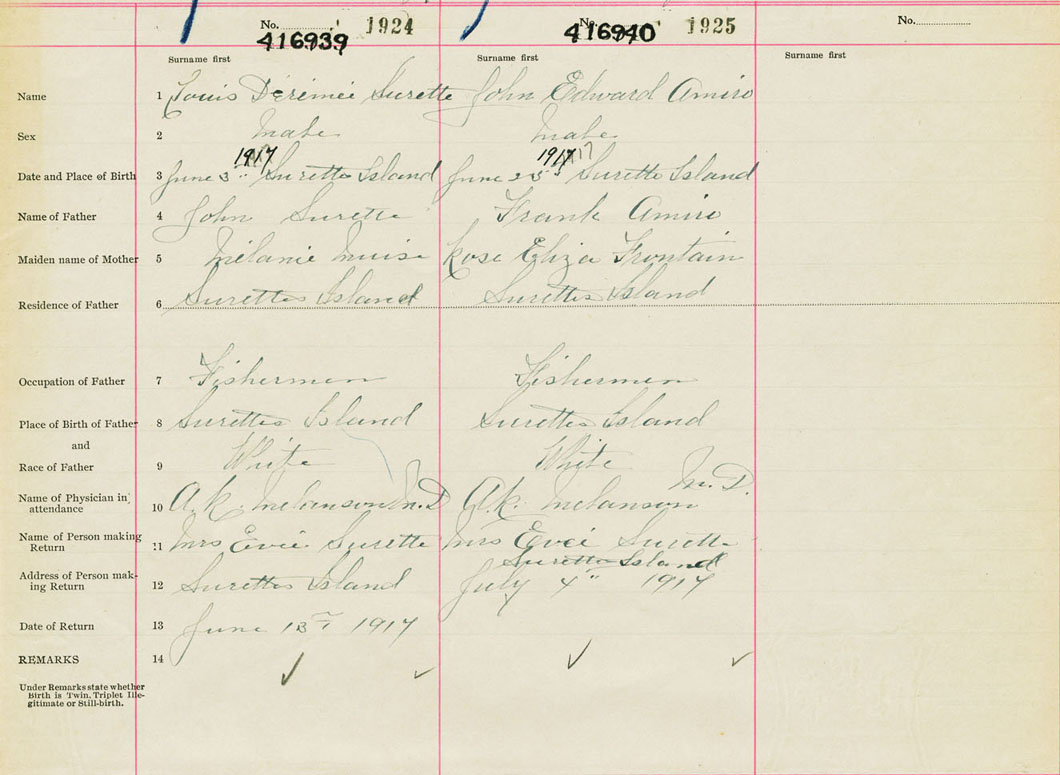 No. 1924 No. 1925 No.
416939 416940
Surname first Surname first Surname first
Name 1 Louis Dérémée Surette John Edward Amiro
Sex 2 Male Male
1917 1917 17
Date and Place of Birth 3 June 3" Surette Island June 25" Surette Island
Name of Father 4 John Surette Frank Amiro
Maiden name of Mother 5 Mélanie Muise Rose Eliza Frontain
Residence of Father 6 Surettes Island Surettes Island
Occupation of Father 7 Fishermen Fishermen
Place of Birth of Father 8 Surettes Island Surettes Island
and
Race of Father 9 White White
Name of Physician in attendance 10 A.K. Melanson M.D A.K. Melanson M.D.
Name of Person making Return 11 Mrs Evée Surette Mrs Evée Surette
Address of Person mak-ing Return 12 Surettes Island Surette Island
July 4" 1917
Date of Return 13 June 13 1917
REMARKS 14
Under Remarks state whether
Birth is Twin, Triplet Ille-
gitimate or Still-birth.